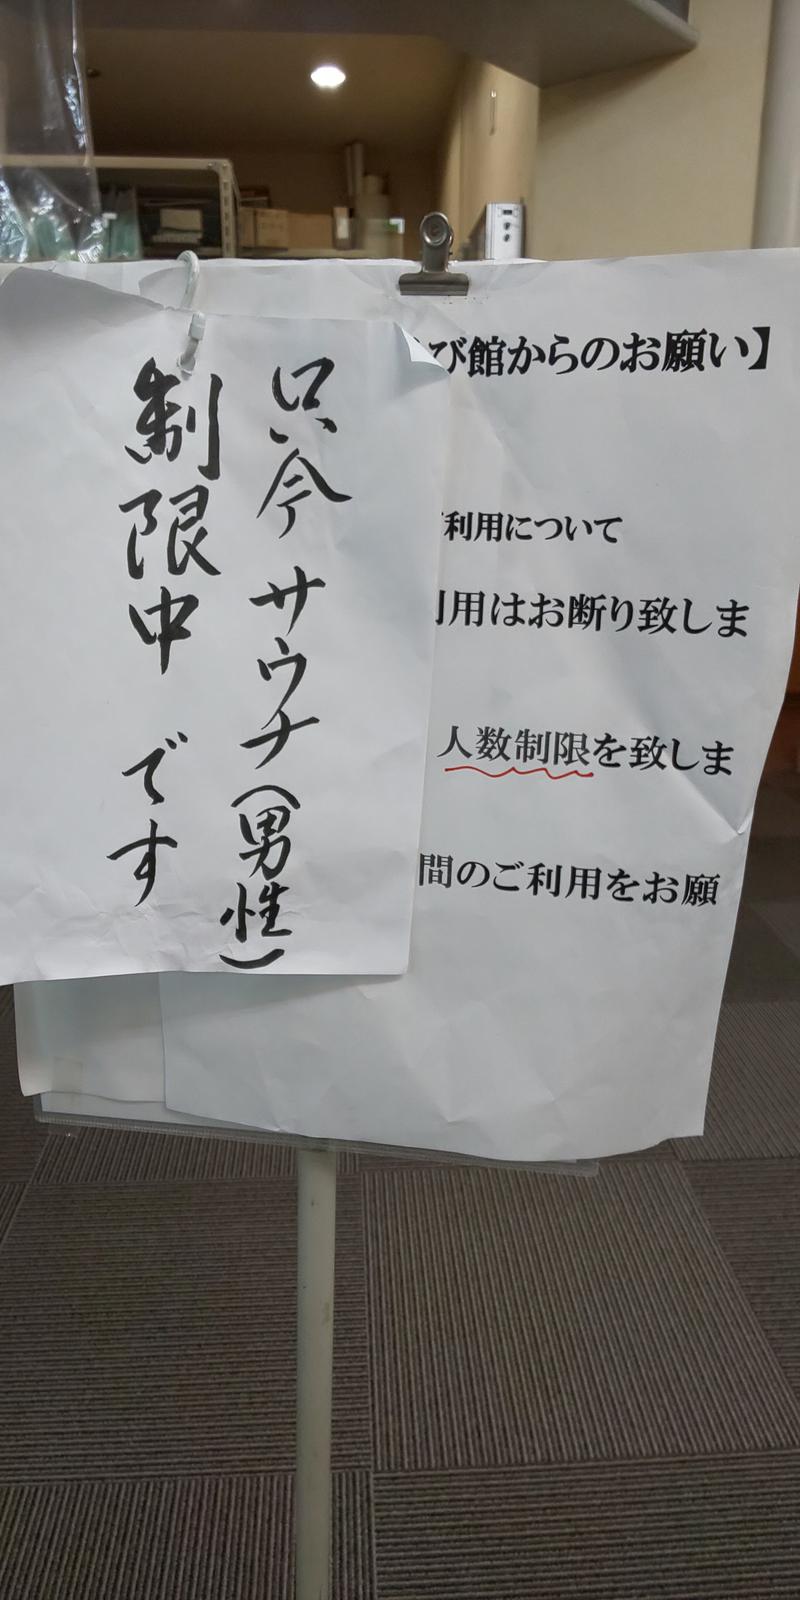 只今サウナ(男性)
制限中です
び館からのお願い】
利用について
用はお断り致しま
人数制限を致しま
間のご利用をお願